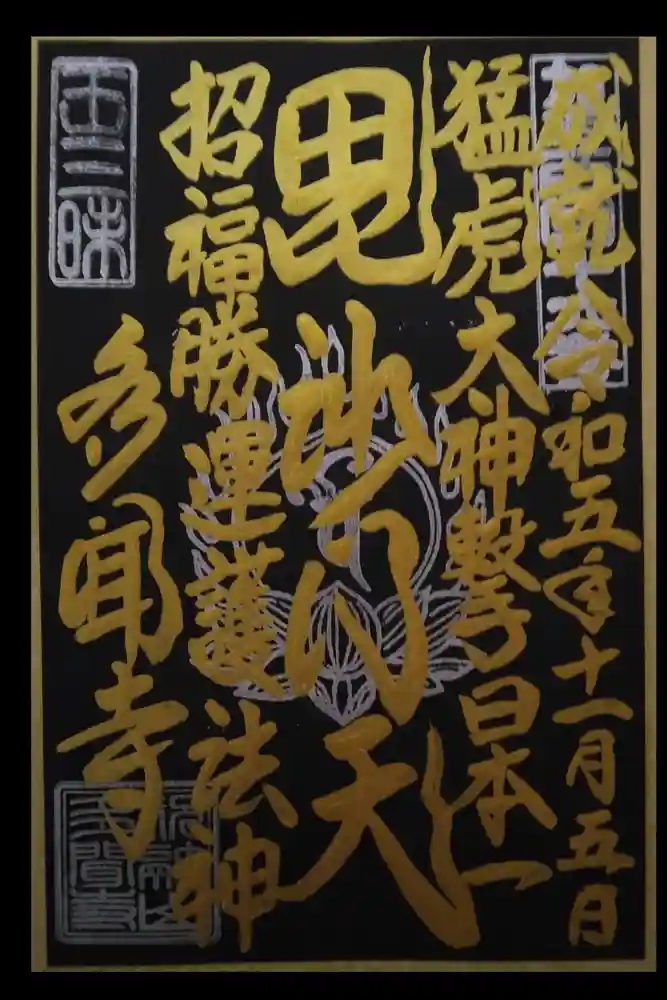 成就令和五年十一月五日
猛虎大神撃日本一
毘沙門天
招福勝運護法神
多聞寺
王三昧